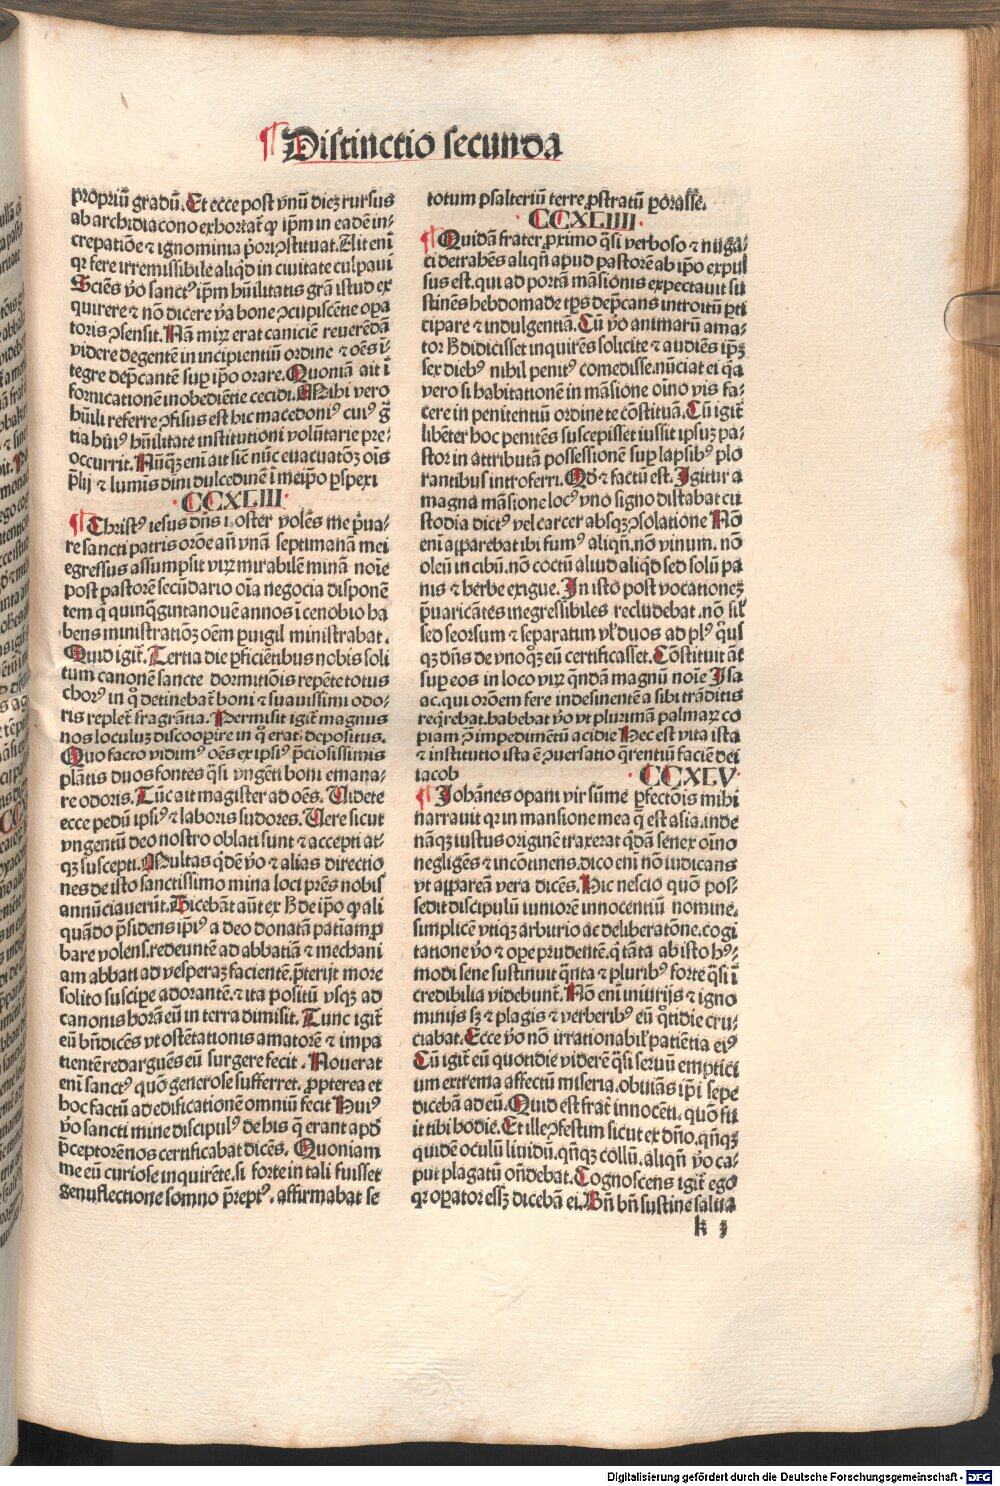 Distinctio secunda
propriū gradū. Et ecce post vnū diez rursus
ab archidiacono exhortat᷑ ꝙ ip̄m in eadē in-
crepatiōe ⁊ ignominia p̄ori ꝯstituat. Ait eni
qꝛ fere irremissibile aliqd in ciuitate culpaui
Sciēs ṽo sanctꝰ ip̄m hūilitatis grā istud ex
quirere ⁊ nō dicere ṽa bone ꝯcupiscētie opa
toris ꝯsensit. Nā miꝝ erat caniciē reuerēdā
videre degentē in incipientiū ordine ⁊ oēs ī-
tegre dep̄cantē suꝑ ip̄o orare. Quoniā ait ī
fornicationē inobedientie cecidi. Mihi vero
hūili referre ꝯfisus est hic macedoniꝰ cuiꝰ g̃
tia huiꝰ hūilitate institutioni volūtarie pre-
occurrit. Nūqꝫ eni ait siē nūc euacuatoz oīs
p̄lij ⁊ lumīs diui dulcedinē ī meip̄o ꝑspexi
CCXLIII
Christꝰ iesus dn̄s noster volēs me p̄ua-
re sancti patris orōe añ vnā septimanā mei
egressus assumpsit viꝝ mirabilē minā noīe
post pastorē secūdario oīa negocia disponē
tem q̄ quinq̄gintanoue annos ī cenobio ha
bens ministratiōz oēm ꝑuigil ministrabat.
Quid igit᷑. Tertia die ꝑficiētibus nobis soli
tum canonē sancte dormitiōis repēte totus
chorꝰ in q̊ detinebat᷑ boni ⁊ suauissimi odo-
ris replet᷑ fragrātia. Permisit igit᷑ magnus
nos loculuz discooꝑire in q̊ erat depositus.
Quo facto vidimꝰ oēs ex ipsiꝰ p̄ciosissimis
plātis duos fontes q̄si vngēti boni emana-
re odoris. Tūc ait magister ad oēs. Videte
ecce pedū ipsiꝰ ⁊ laboris sudores. Vere sicut
vngentū deo nostro oblati sunt ⁊ accepti at-
qꝫ suscepti. Multas q̄dē ṽo ⁊ alias directio
nes de isto sanctissimo mina loci p̄rēs nobis
annūciauerūt. Dicebāt aūt ex h̄ de ip̄o ꝙ ali
quādo p̄sidens ip̄iꝰ a deo donatā patiam ꝓ
bare volens. redeuntē ad abbatiā ⁊ mechani
am abbati ad vesperaz facientē. p̄terijt more
solito suscipe adorantē. ⁊ ita positū vsqꝫ ad
canonis horā eū in terra dimisit. Tunc igit᷑
eū bn̄dicēs vt ostētationis amatorē ⁊ impa
tientē redarguēs eū surgere fecit. Nouerat
eni sanctꝰ quō generose sufferret. ꝓpterea et
hoc factū ad edificationē omniū fecit. Huiꝰ
ṽo sancti mine discipulꝰ de his q̄ erant apd̄
p̄ceptorē nos certificabat dicēs. Quoniam
me eū curiose inquirēte. si forte in tali fuisset
genuflectione somno p̄reptꝰ. affirmabat se
totum psalteriū terre ꝓstratū ꝑorasse.
CCXLIIII
Quidā frater ꝓrimo q̄si verboso ⁊ nuga-
ci detrahēs aliqñ apud pastorē ab ip̄o expul
sus est. qui ad portā māsionis expectauit su
stinēs hebdomade tꝑs dep̄cans introitū ꝑti
cipare ⁊ indulgentiā. Cū ṽo animarū ama-
tor h̄ didicisset inquirēs solicite ⁊ audiēs ip̄ꝫ
sex diebꝰ nihil penitꝰ comedisse. nūciat ei qa
vero si habitationē in māsione oīno vis fa-
cere in penitentiū ordine te cōstitua. Cū igit᷑
libēter hoc penitēs suscepisset iussit ipsuz pa-
stor in attributā possessionē suꝑ lapsibꝰ plo
rantibus introferri. Qd̄ ⁊ factū est. Igitur a
magna māsione locꝰ vno signo distabat cu
stodia dictꝰ vel carcer absqꝫ ꝯsolatione. Nō
eni apparebat ibi fumꝰ aliqñ. nō vinum. nō
oleū in cibū. nō coctū aliud aliqd sed solū pa
nis ⁊ herbe exigue. In isto post vocationez
p̄uaricātes inegressibiles recludebat. nō sil̄
sed seorsum ⁊ separatim vl̓ duos ad plꝰ q̊us
qꝫ dn̄s de vnoqꝫ eū certificasset. Cōstituit āt
suꝑ eos in loco viꝝ qndā magnū noīe Isa
ac. qui orōem fere indesinentē a sibi trāditis
req̄rebat. habebat ṽo vt plurimā palmaꝝ co
piam ꝓ impedimētū acidie. Hec est vita ista
⁊ institutio ista ē ꝯuersatio q̄rentiū faciē dei
iacob CCXLV
Johānes opani vir sūme ꝑfectōis mihi
narrauit qꝛ in mansione mea q̄ est asia. inde
nāqꝫ iustus originē traxerat q̄dā senex oīno
negligēs ⁊ incōtinens. dico eni nō iudicans
vt appareā vera dicēs. Hic nescio quō pos-
sedit discipulū iuniorē innocentiū nomine.
simplicē vtiqꝫ arbitrio ac deliberatōne. cogi
tatione ṽo ⁊ ope prudentē. q̄ tāta ab isto hꝰ-
modi sene sustinuit q̄nta ⁊ pluribꝰ forte q̄si ī
credibilia videbunt᷑. Nō eni iniurijs ⁊ igno
minijs sꝫ ⁊ plagis ⁊ verberibꝰ eū q̊tidie cru-
ciabat. Ecce ṽo nō irrationabil̓ patiētia eiꝰ
Cū igit᷑ eū quotidie viderē q̄si seruū emptici
um extrema affectū miseria. obuiās ip̄i sepe
dicebā ad eū. Quid est frat᷑ innocēti. quō fu
it tibi hodie. Et ille ꝯfestim sicut ex dn̄o. qn̄qꝫ
quidē oculū liuidū. qn̄qꝫ collū. aliqñ ṽo ca-
put plagatū ondebat. Cognoscens igit᷑ ego
qꝛ oꝑator essꝫ dicebā ei. Bn̄ bn̄ sustine salua
k ꝫ
Digitalisierung gefördert durch die Deutsche Forschungsgemeinschaft - DFG